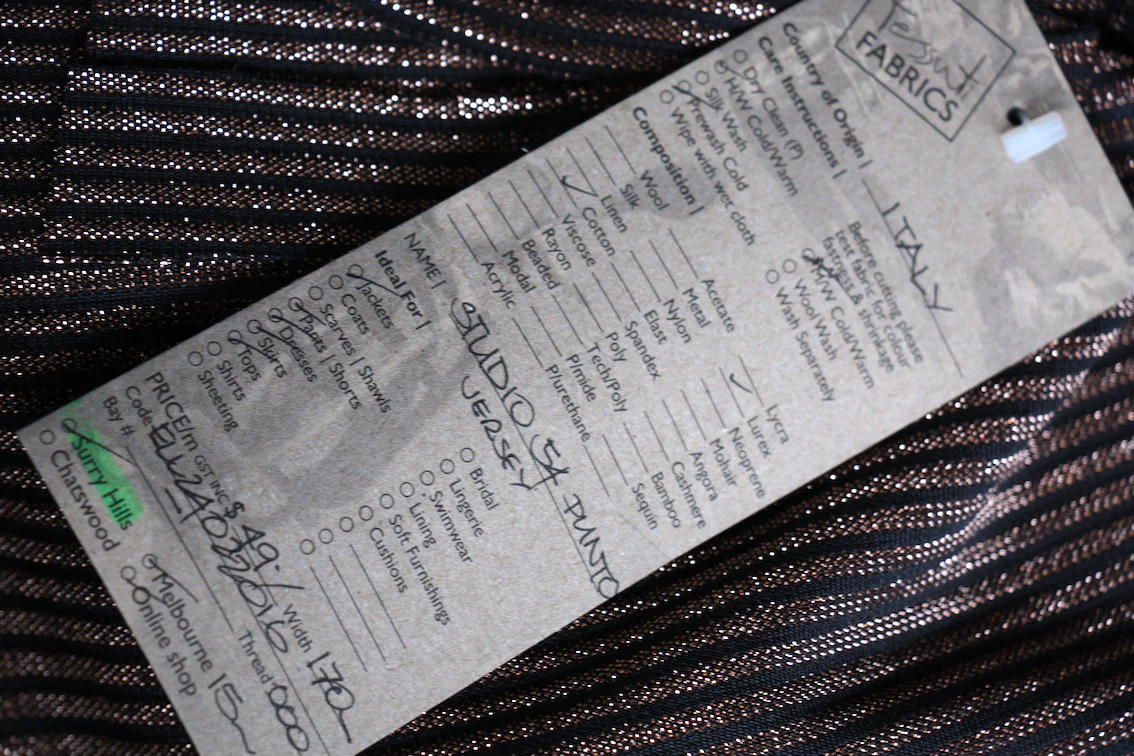 Tessuti
FABRICS
Country of Origin | ITALY
Care Instructions |
Before cutting please
test fabric for colour
fastness & shrinkage.
Dry Clean (P)
H/W Cold/Warm
Silk Wash
Prewash Cold
Wipe with wet cloth
H/W Cold/Warm
Wool Wash
Wash Separately
Composition |
Wool
Silk
Linen
✓ Cotton
Viscose
Rayon
Beaded
Modal
Acrylic
Acetate
Metal
Nylon
Elast
Spandex
Poly
Tech/Poly
P/mide
P/urethane
Lycra
✓ Lurex
Neoprene
Mohair
Angora
Cashmere
Bamboo
Sequin
NAME | STUDIO 54 PUNTO
JERSEY
Ideal For |
Jackets
Coats
Scarves | Shawls
Pants | Shorts
Dresses
Skirts
Tops
Shirts
Sheeting
Bridal
Lingerie
Swimwear
Lining
Soft Furnishings
Cushions
PRICE/m GST INC $ 49.- Width 1.70
Code Thread 000
Bay #
Surry Hills
Chatswood
Melbourne 15
Online shop